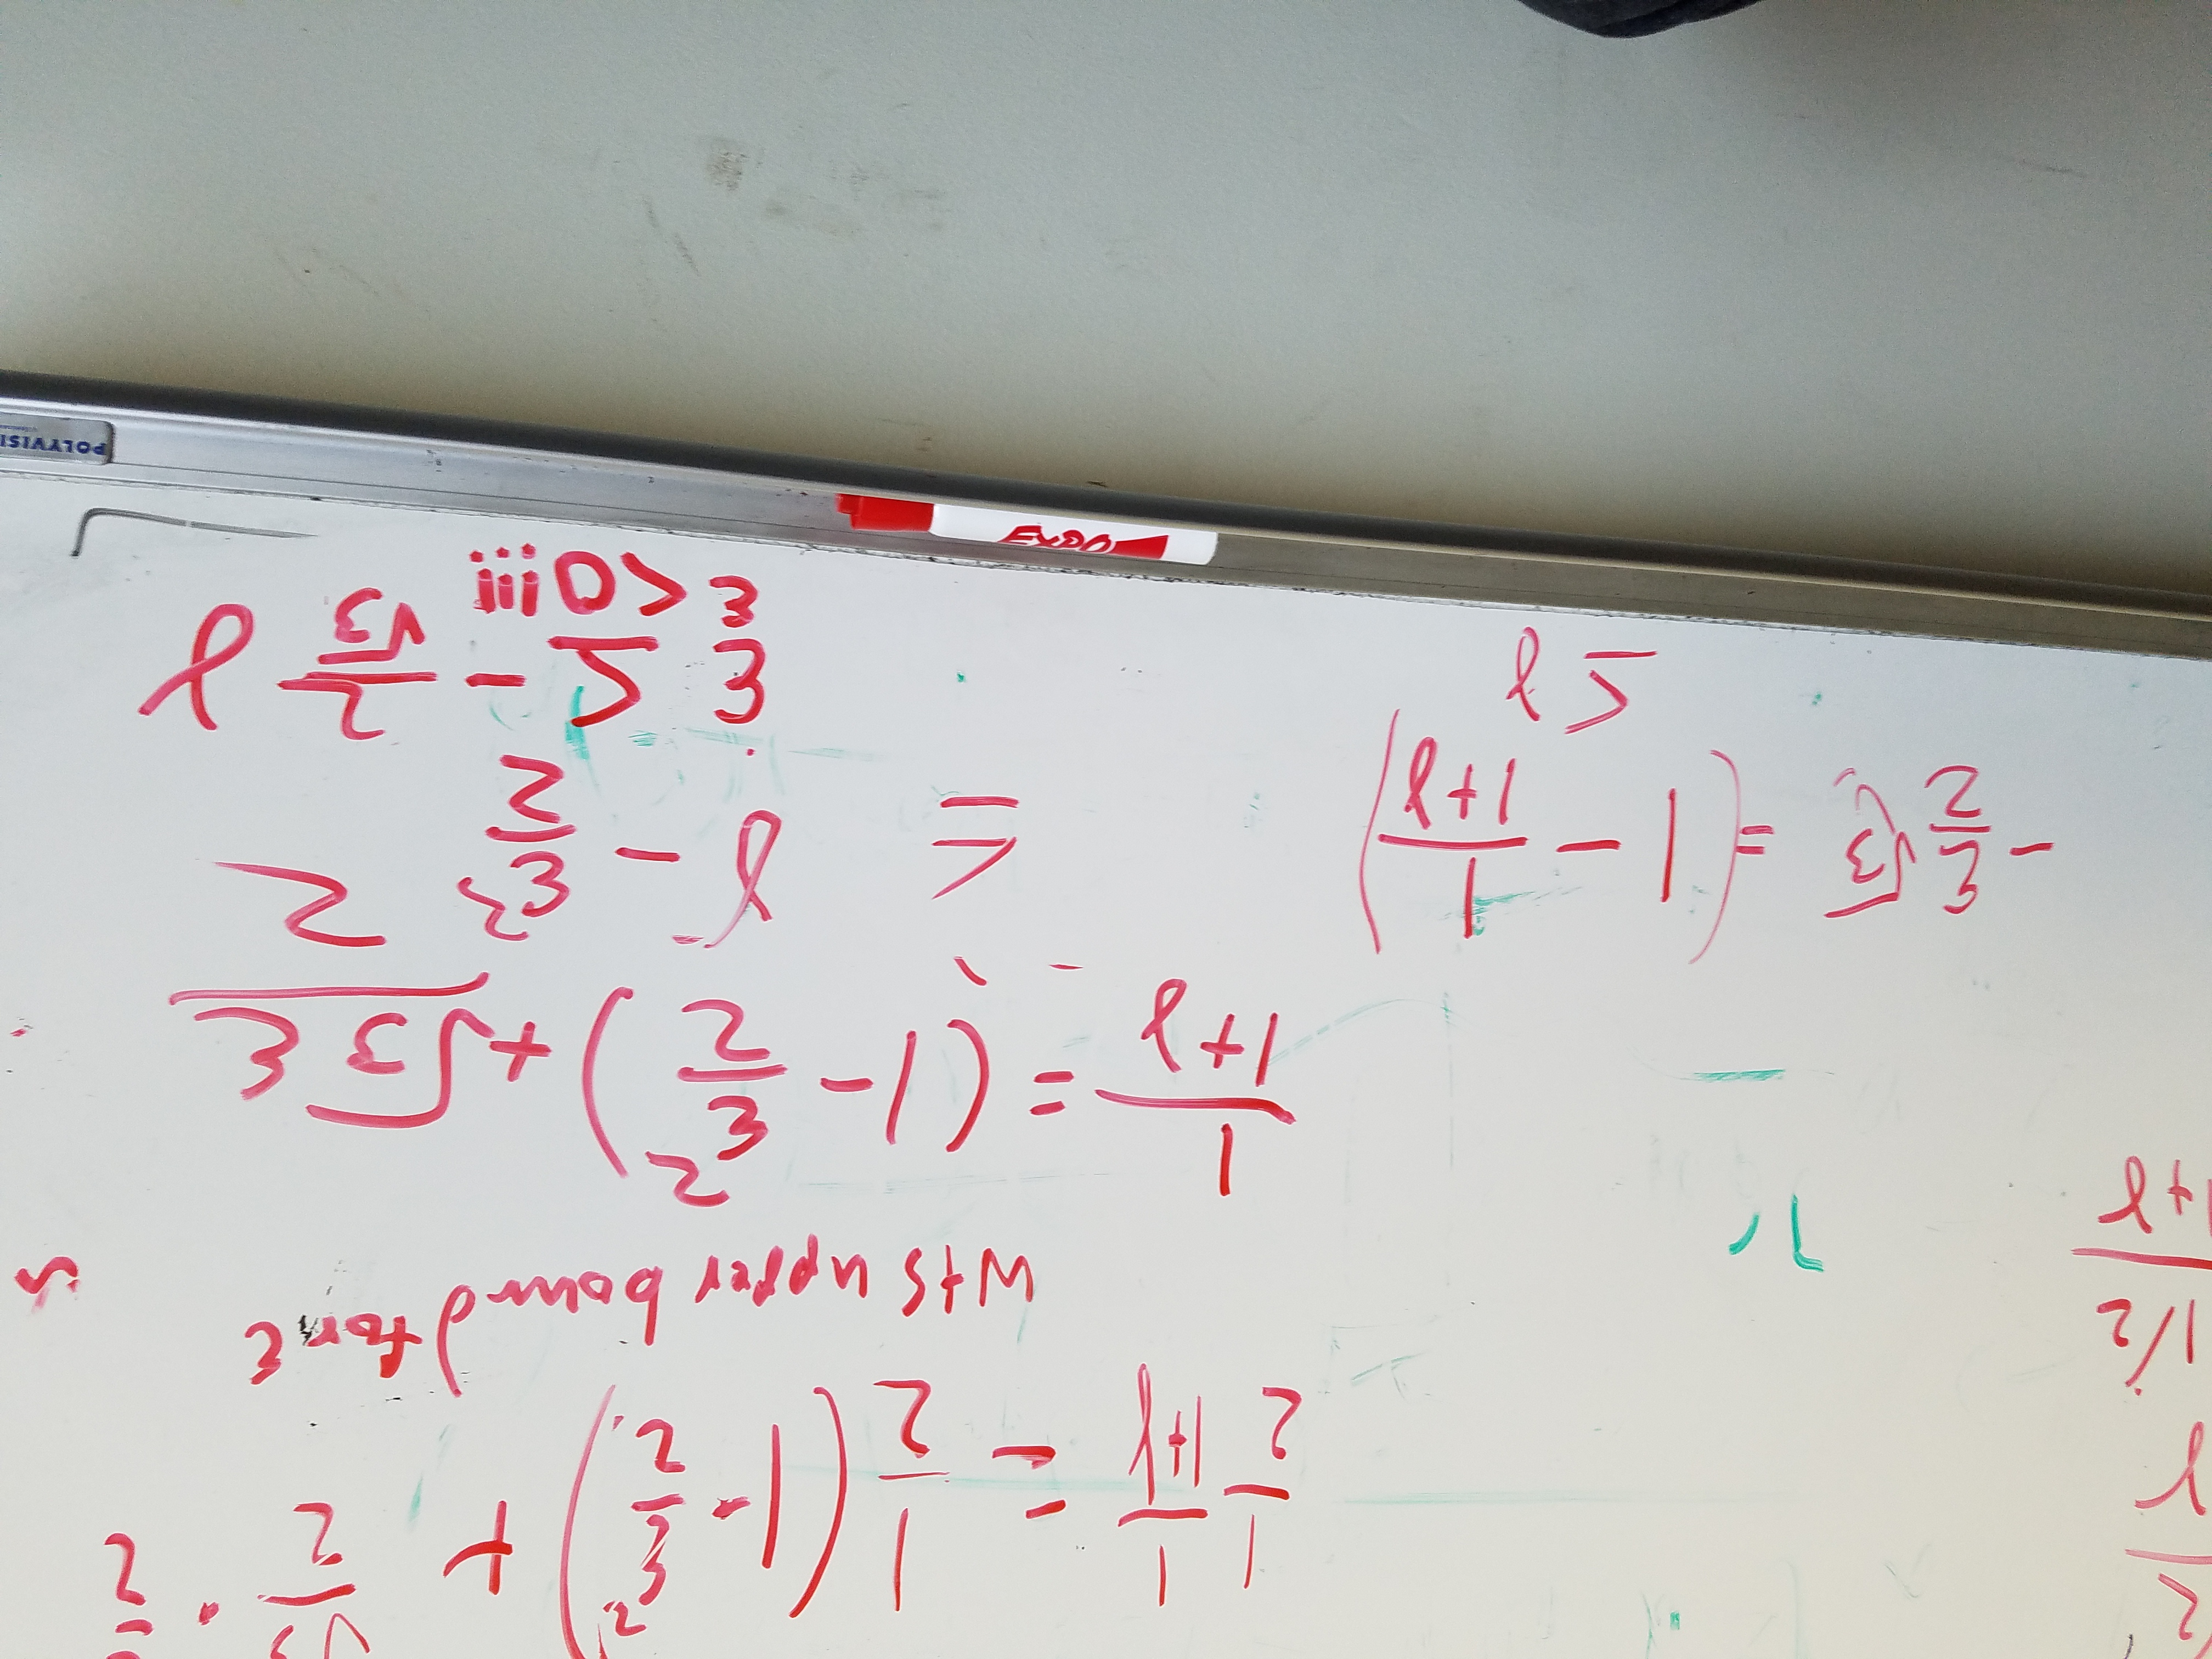 2
γ
1/2
1+γ
1/2 1/(1+γ) = 1/2 (1 - ε²/2) + √3/2 · ε/2
wts upper bound for ε
1/(1+γ) = (1 - ε²/2) + √3 ε/2
- ε/2 √3 = (1 - 1/(1+γ))
≤ γ - ε²/2
≤ γ
ε ≤ - 2/√3 γ
ε < 0 !!!
EXPO
POLYVISI